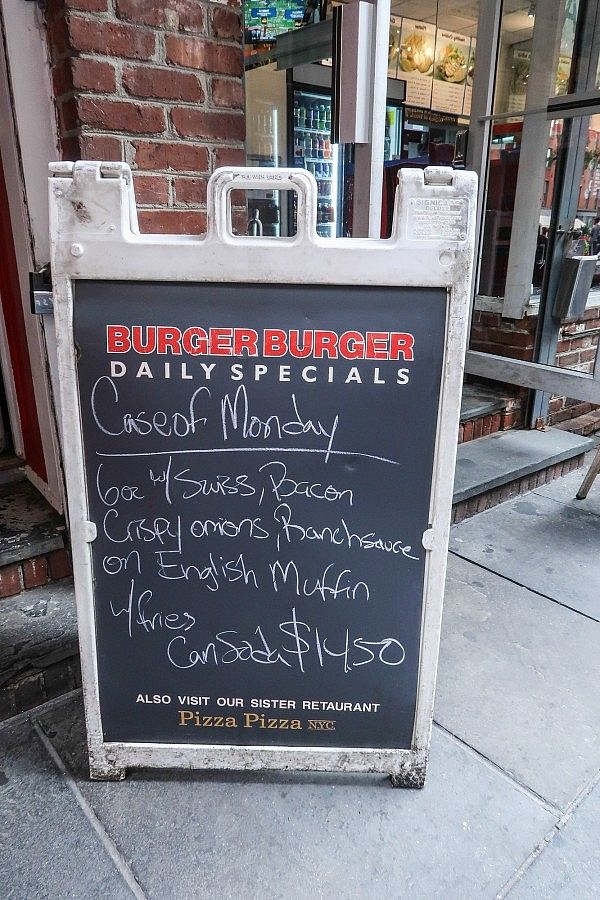 BURGER BURGER
DAILY SPECIALS
Case of Monday
6oz w/ Swiss, Bacon
Crispy onions, Ranch sauce
on English Muffin
w/ fries
Can Soda $14.50
ALSO VISIT OUR SISTER RETAURANT
Pizza Pizza NYC.